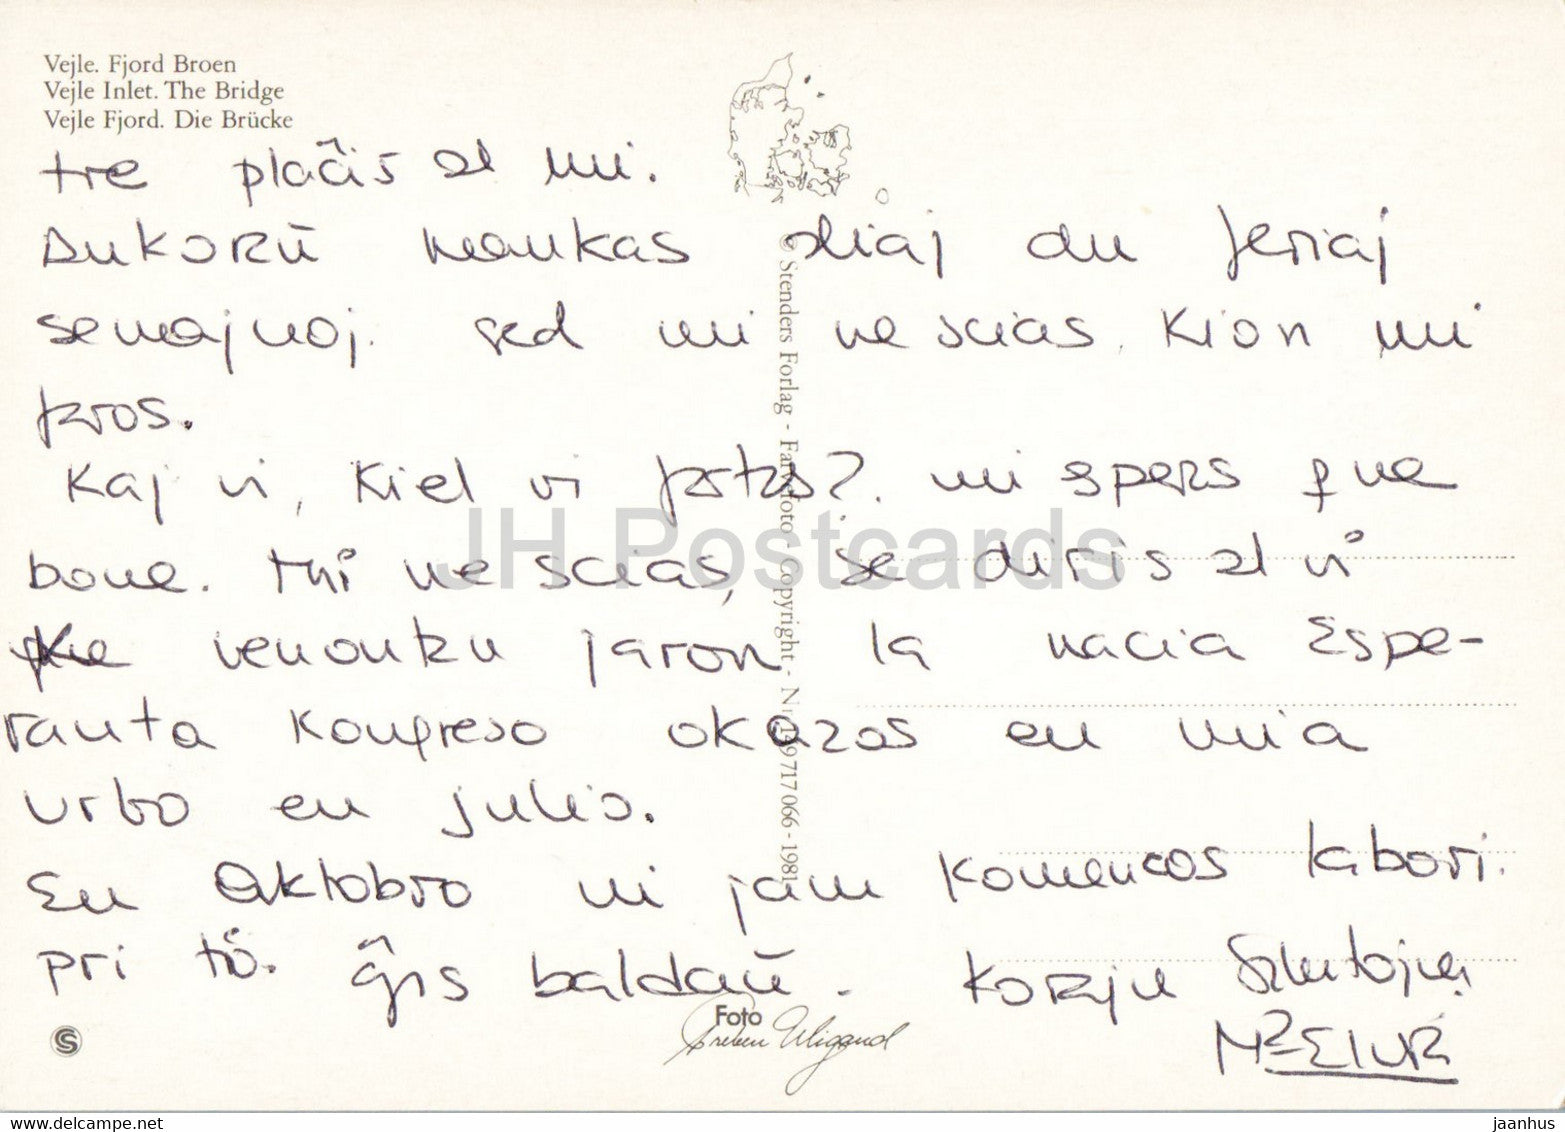 Vejle. Fjord Broen
Vejle Inlet. The Bridge
Vejle Fjord. Die Brücke
tre plaĉis al mi.
mankas du feriaj
semajnoj. sed mi ne scias, kion mi
faros.
Kaj vi, kiel vi fartas?. mi esperas ke ne
bone. Mi ne scias, se diris al vi
ke venontan jaron la nacia Espe-
ranta kongreso okazos en mia
urbo en julio.
En Oktobro mi jam komencos labori.
pri tio. ĝis baldaŭ. Korajn Salutojn,
© Stenders Forlag - Farvefoto - Copyright - Nr. 149 717 066 - 1981
Foto
Preben Wigand
S
JH Postcards
delcampe.net
jaanhus